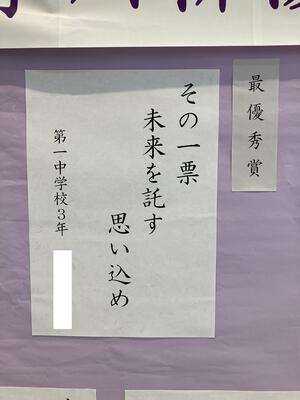 最優秀賞
その一票
未来を託す
思い込め
第一中学校3年